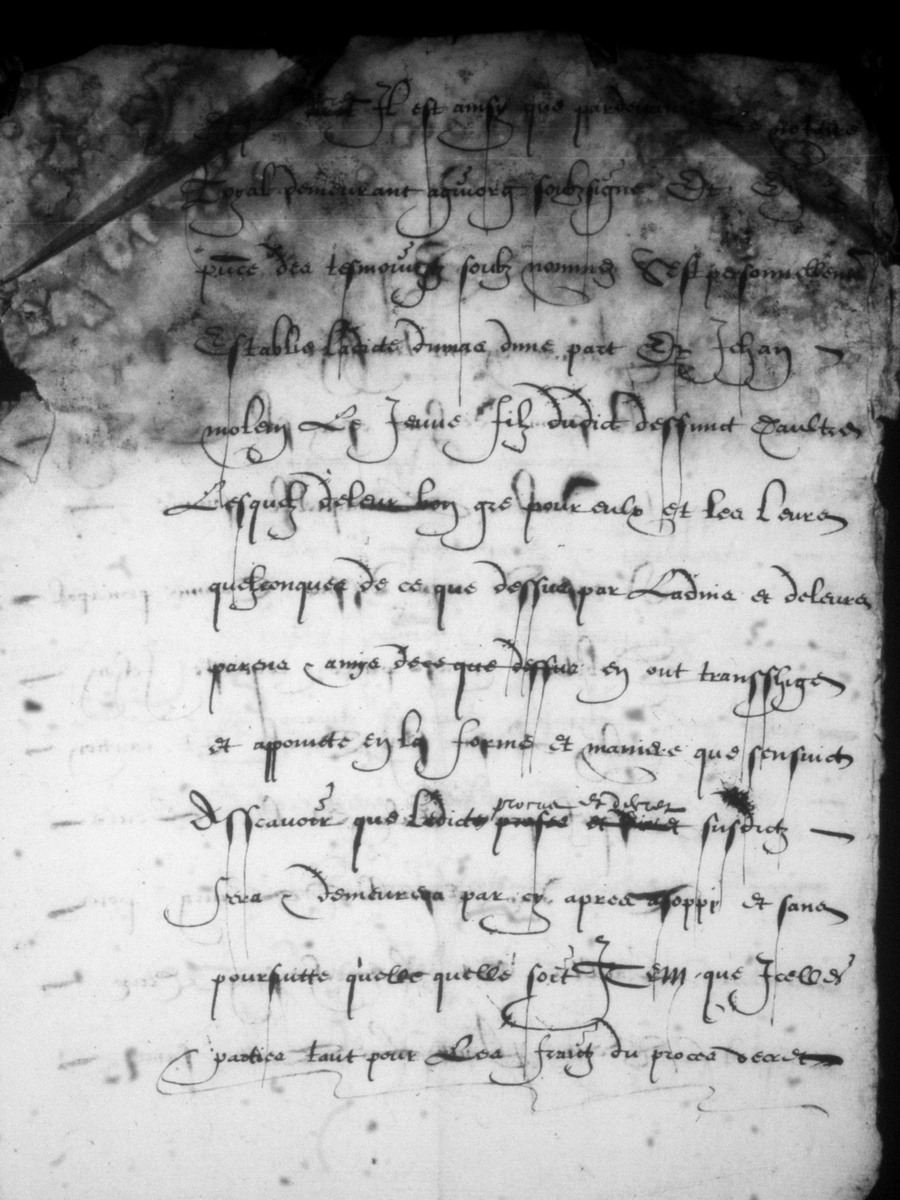 Il est ainsi que pardevant notaire
Royal demeurant soubzsigne Et
pnce des tesmoingz soubz nommez Cest personnellement
Establis ladicte dumas dune part Et Jehan
molein Le Jeune filz dudict deffunct daultre
Lesquelz deleur bon gre pour eulx et les leurs
quelzconques de ce que dessus par Ladvis et deleurs
parens & amys dece que dessus en ont transsige
et apoincte en la forme et maniere que sensuict
proces et decret
Asscavoir que Ledict proses et susdictz
Sera & demeurera par cy apres asoppy et sans
poursuitte quelle quelle soit Item que Icelles
parties tant pour Les fraictz du proces decret